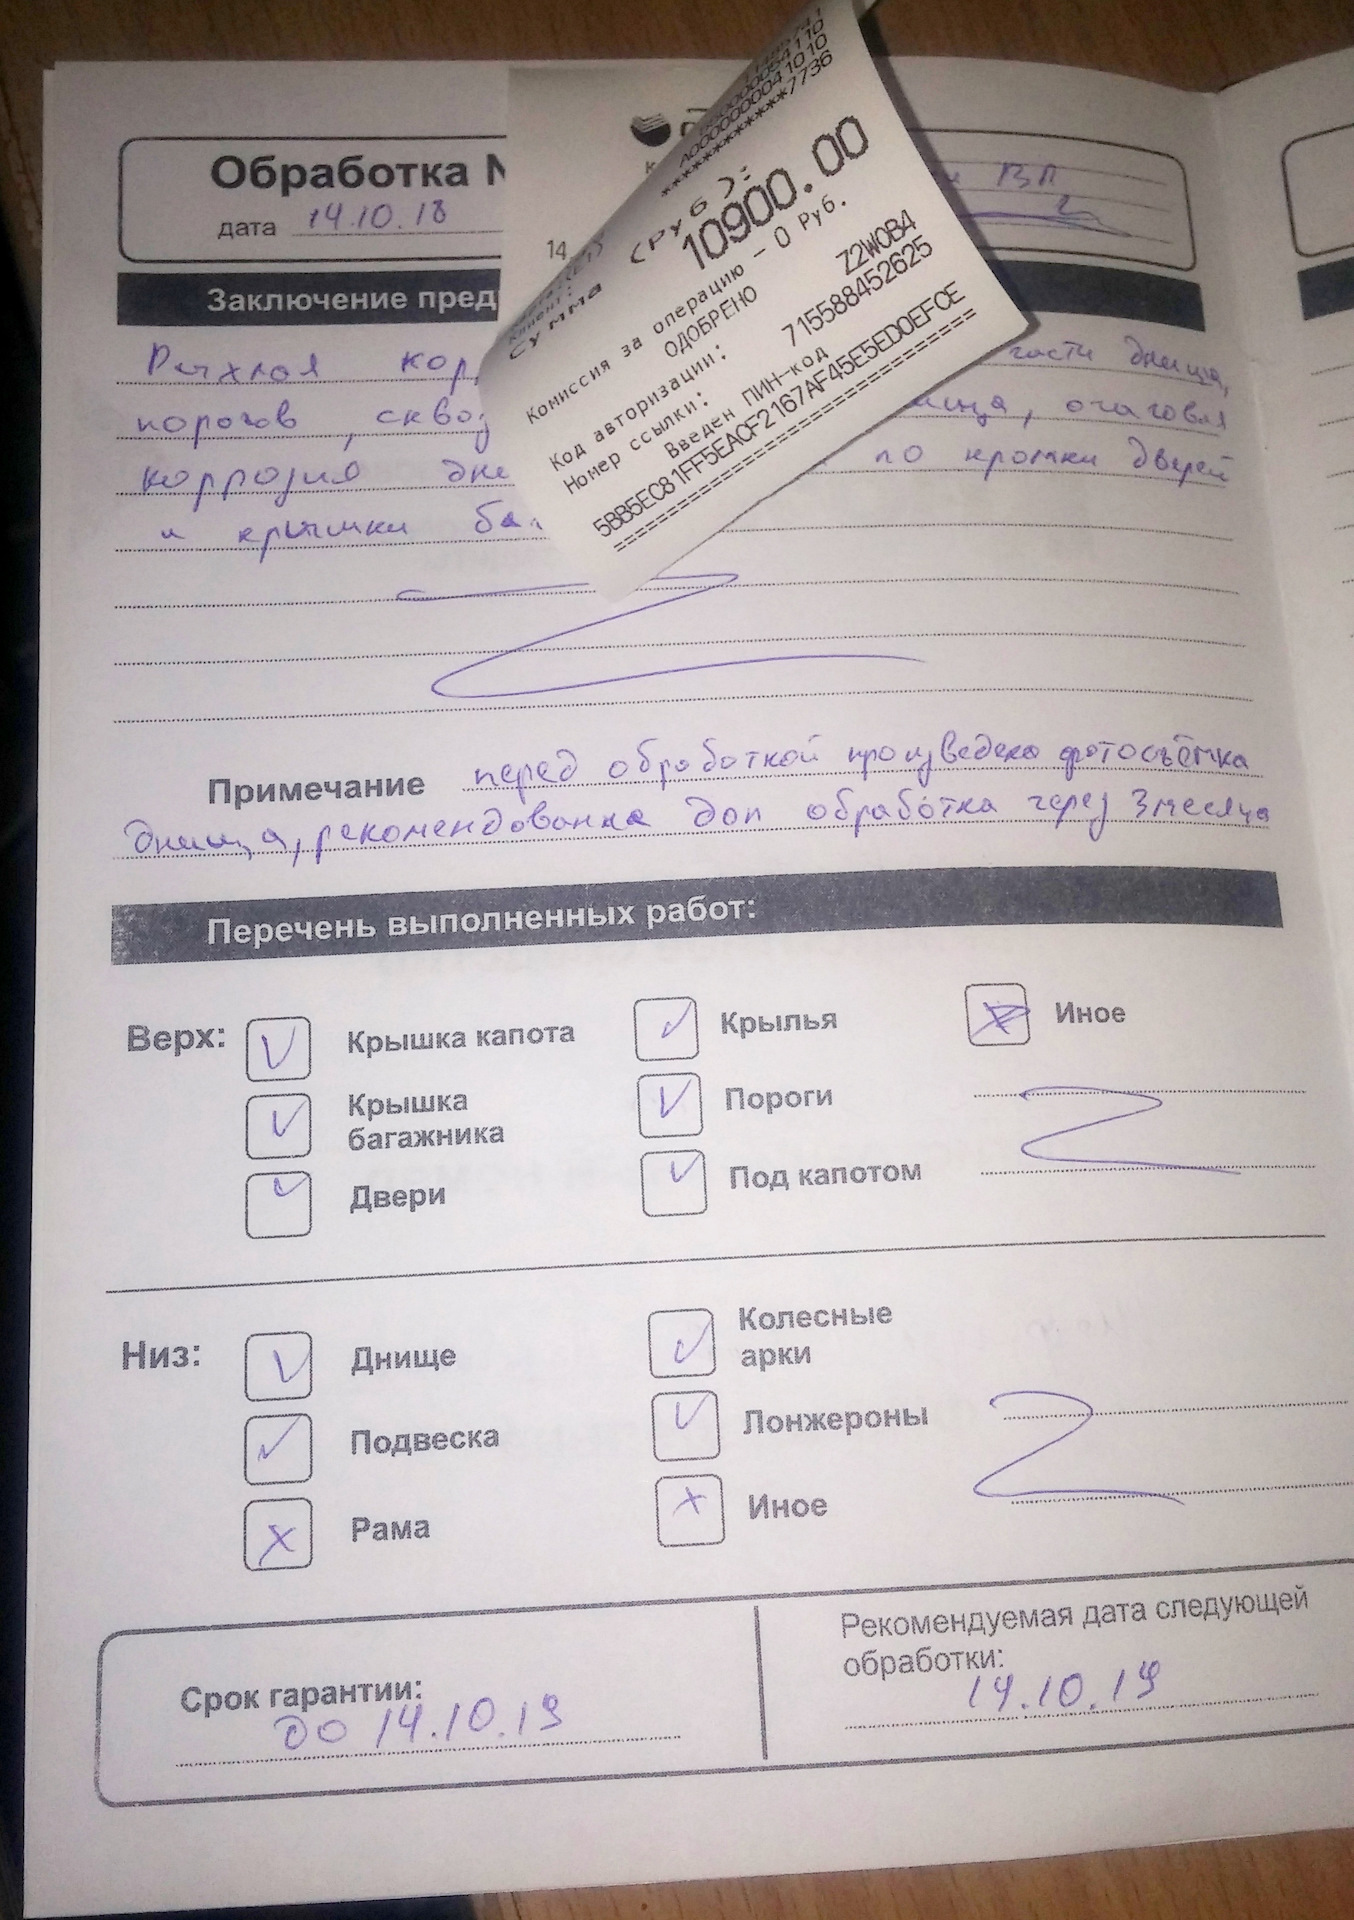 Обработка N
дата 14.10.18
ВЛ
Заключение пред
Рыхлая кор части днища,
порогов, сквоз ища, очаговая
коррозия дни по кромки дверей
и крышки ба
Примечание перед обработкой произведена фотосъёмка
днища, рекомендованна доп обработка через 3 месяца
Перечень выполненных работ:
Верх:
Крышка капота
Крылья
Иное
Крышка
багажника
Пороги
Двери
Под капотом
Низ:
Днище
Колесные
арки
Подвеска
Лонжероны
Рама
Иное
Срок гарантии:
до 14.10.19
Рекомендуемая дата следующей
обработки:
14.10.19
A0000000041010
************7736
14
Сумма (Руб):
10900.00
Комиссия за операцию - 0 Руб.
ОДОБРЕНО
Код авторизации: Z2W0B4
Номер ссылки: 715588452625
Введен ПИН-код
5BB5EC81FF5EACF2167AF45E5ED0EFCE
==============================